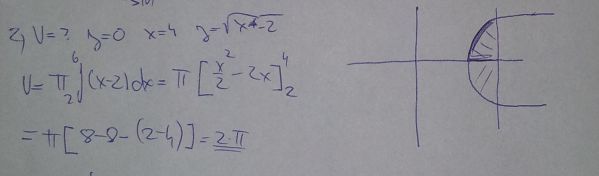 2, V=? y=0 x=4 y=√x-2
V= π ₂∫⁶ (x-2)dx = π [x²/2 - 2x]₂⁴
= π [8-8-(2-4)] = 2·π